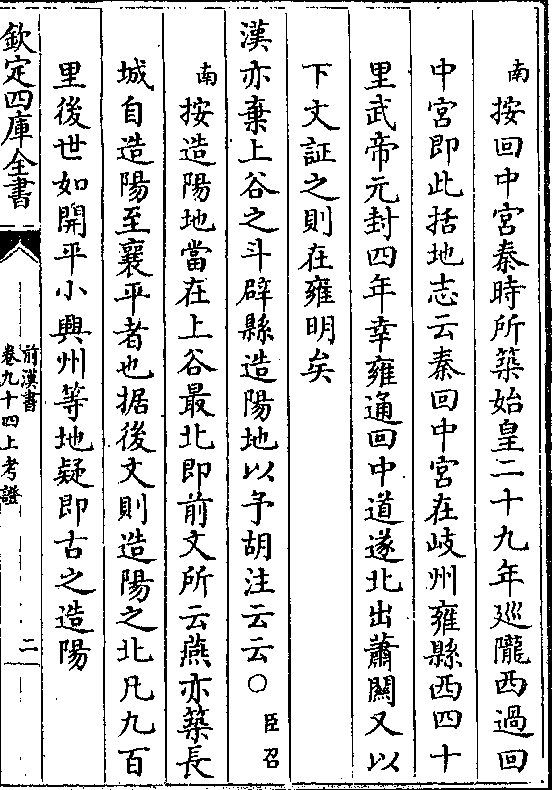 南按回中宮秦時所築始皇二十九年巡隴西過回
中宮即此括地志云秦回中宮在岐州雍縣西四十
里武帝元封四年幸雍通回中道遂北出蕭關又以
下文証之則在雍明矣
漢亦棄上谷之斗辟縣造陽地以予胡注云云○臣召
南按造陽地當在上谷最北即前文所云燕亦築長
城自造陽至襄平者也据後文則造陽之北凡九百
里後世如開平小興州等地疑即古之造陽
欽定四庫全書
前漢書
卷九十四上考證
二